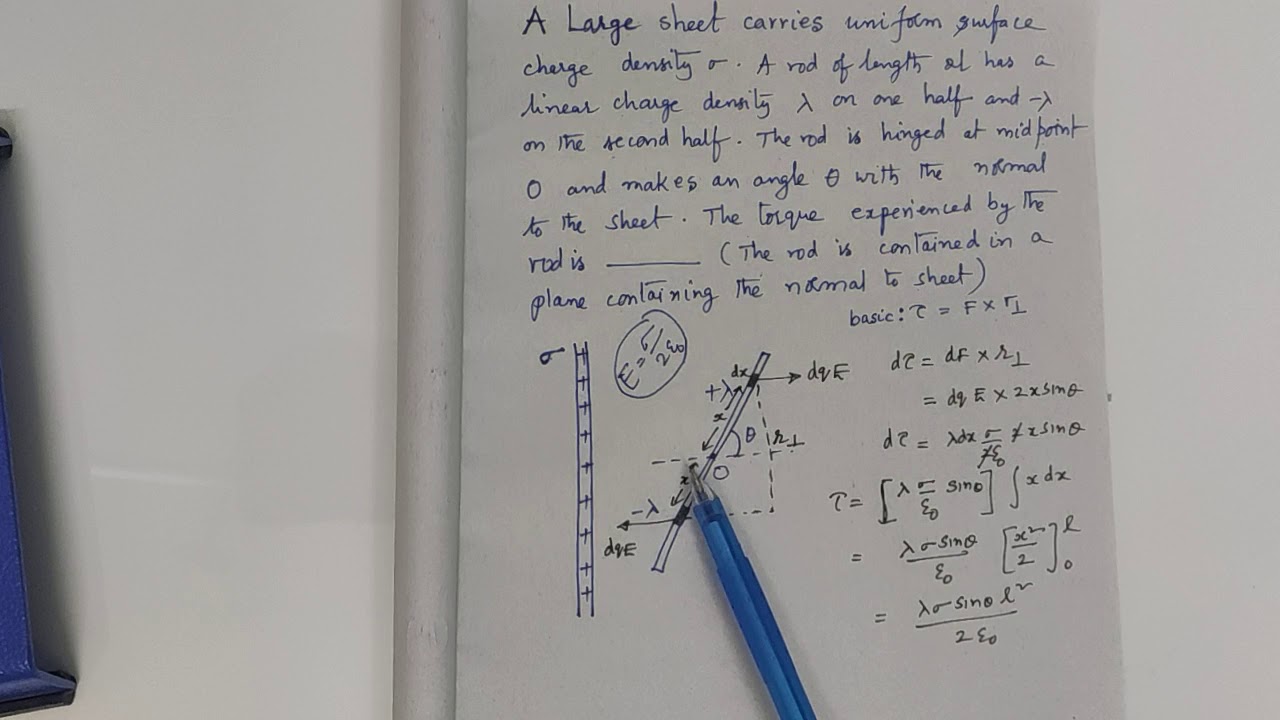 A Large sheet carries uniform surface
charge density σ. A rod of length 2l has a
linear charge density λ on one half and -λ
on the second half. The rod is hinged at midpoint
O and makes an angle θ with the normal
to the sheet. The torque experienced by the
rod is ______ (The rod is contained in a
plane containing the normal to sheet)
basic: τ = F × r⊥
σ
E = σ/2ε₀
dx
dqE
+λ
x
θ
r⊥
O
x
-λ
dqE
+ + + + + + + + + +
dτ = dF × r⊥
= dq E × 2x sinθ
dτ = λdx σ/2ε₀ 2x sinθ
τ = [λ σ/ε₀ sinθ] ∫ x dx
= λσ sinθ/ε₀ [x²/2]₀ˡ
= λσ sinθ l²/2ε₀